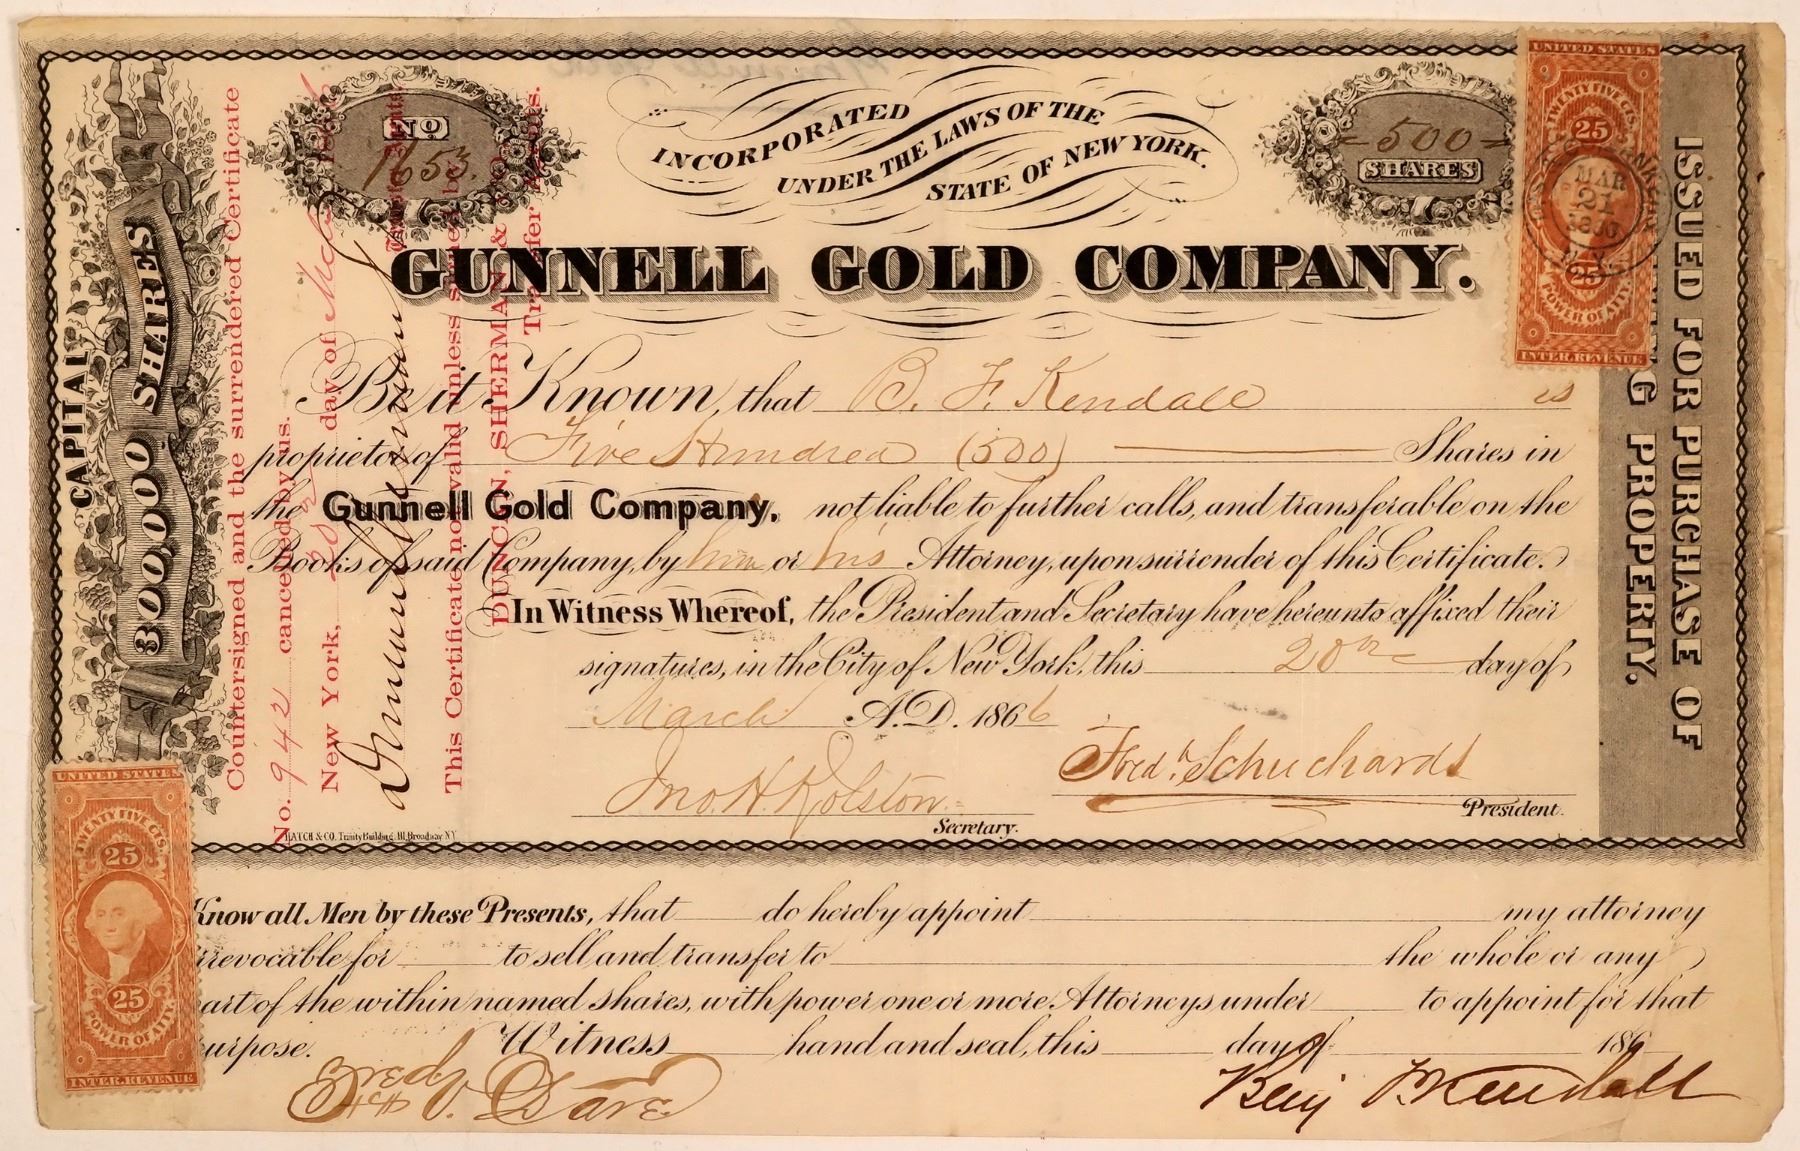 No
1653.
INCORPORATED
UNDER THE LAWS OF THE
STATE OF NEW YORK.
=500=
SHARES
GUNNELL GOLD COMPANY.
Be it Known, that B. F. Kendall is
proprietor of Five Hundred (500) Shares in
the Gunnell Gold Company, not liable to further calls, and transferable on the
Books of said Company, by him or his Attorney, upon surrender of this Certificate.
In Witness Whereof, the President and Secretary have hereunto affixed their
signatures, in the City of New York, this 20th day of
March A.D. 1866
Jno. H. Rolston
Secretary.
Fredk Schuchardt
President.
HATCH & CO. Trinity Building, 111 Broadway N.Y.
CAPITAL
300,000 SHARES
Countersigned and the surrendered Certificate
No. 942 cancelled by us.
New York, 20th day of Mch 1866
This Certificate not valid unless signed by
DUNCAN, SHERMAN &
Transfer Agents.
Duncan Sherman
ISSUED FOR PURCHASE OF
PROPERTY.
UNITED STATES
TWENTY FIVE CTS.
25
25
POWER OF ATTY.
INTER. REVENUE
MAR
21
UNITED STATES
TWENTY FIVE CTS.
25
25
POWER OF ATTY.
INTER. REVENUE
Know all Men by these Presents, that do hereby appoint my attorney
irrevocable for to sell and transfer to the whole or any
part of the within named shares, with power one or more Attorneys under to appoint for that
purpose. Witness hand and seal, this day of 186
Benj F Kendall